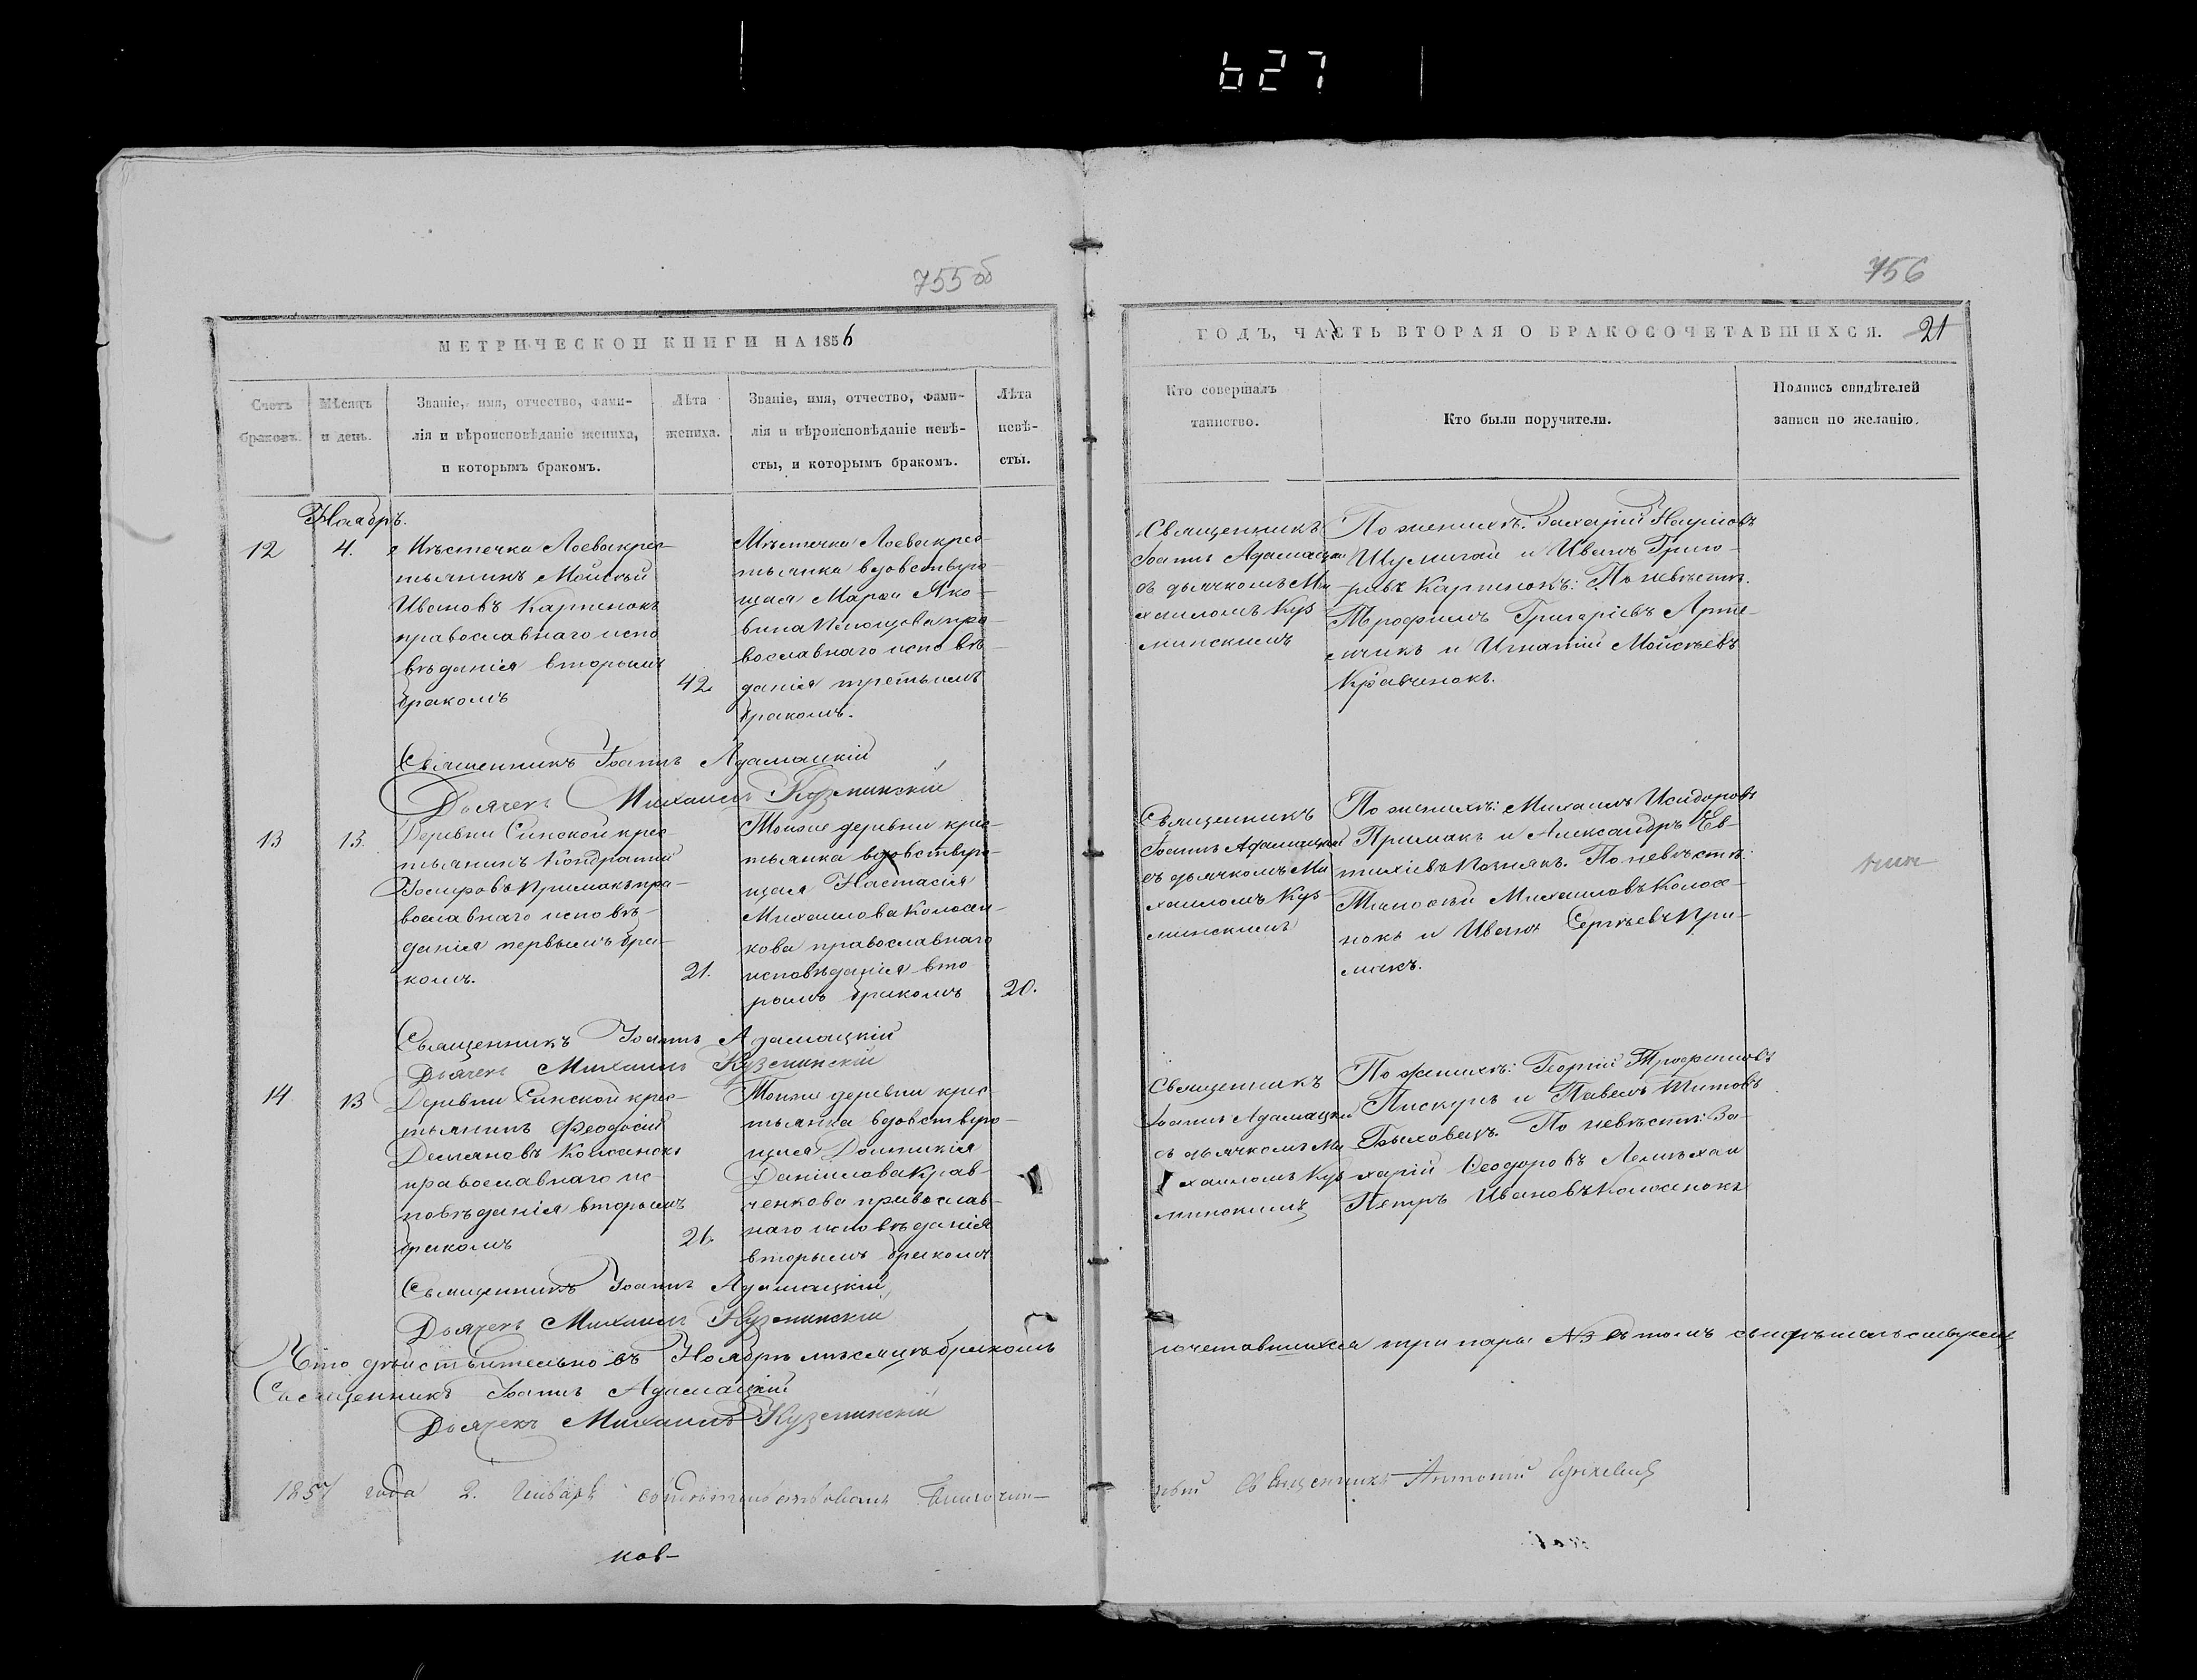 627
755 об
МЕТРИЧЕСКОЙ КНИГИ НА 1856
Счетъ браковъ.
Мѣсяцъ и день.
Званіе, имя, отчество, фами-
лія и вѣроисповѣданіе жениха,
и которымъ бракомъ.
Лѣта
жениха.
Званіе, имя, отчество, фами-
лія и вѣроисповѣданіе невѣ-
сты, и которымъ бракомъ.
Лѣта
невѣ-
сты.
Ноябрь.
12
4.
Мѣстечка Лоева крес-
тьянинъ Мойсей
Ивановъ Карпенокъ
православнаго испо
вѣданія вторымъ
бракомъ
42.
Мѣстечка Лоева крес-
тьянка вдовствую
щая Марѳа Яко-
влева пра-
вославнаго исповѣ-
данія третьимъ
бракомъ.
Священникъ Іоаннъ Адамацкій
Дьячекъ Михаилъ Кузминскій
13
13.
Деревни Синской крес-
тьянинъ Кондратій
Іосифовъ Примакъ пра-
вославнаго исповѣ-
данія первымъ бра-
комъ.
21.
Тойже деревни крес-
тьянка вдовствую-
щая Настасія
Михаилова Колосен-
кова православнаго
исповѣданія вто
рымъ бракомъ
20.
Священникъ Іоаннъ Адамацкій
Дьячекъ Михаилъ Кузминскій
14
13
Деревни Синской крес-
тьянинъ Феодосій
Демяновъ Кожанокъ
православнаго ис-
повѣданія вторымъ
бракомъ
21.
Тойже деревни крес-
тьянка вдовствую-
щая Домникія
Даніилова Крав-
ченкова православ-
наго исповѣданія
вторымъ бракомъ
Священникъ Іоаннъ Адамацкій
Дьячекъ Михаилъ Кузминскій
Что дѣйствительно въ Ноябрѣ мѣсяцѣ бракомъ
Священникъ Іоаннъ Адамацкій
Дьячекъ Михаилъ Кузминскій
1857 года 2. Января свидѣтельствовалъ Благочин-
ков-
756
ГОДЪ, ЧАСТЬ ВТОРАЯ О БРАКОСОЧЕТАВШИХСЯ.
21
Кто совершалъ
таинство.
Кто были поручители.
Подпись свидѣтелей
записи по желанію.
Священникъ
Іоаннъ Адамацкій
съ дьячкомъ Ми
хаиломъ Куз
минскимъ
По женихѣ: Захарій Наумовъ
Шулигай и Иванъ Григо-
рьевъ Карпенокъ: По невѣстѣ.
Трофимъ Григоріевъ Арте-
мчикъ и Игнатій Мойсѣевъ
Кравченокъ.
Священникъ
Іоаннъ Адамацкій
съ дьячкомъ Ми
хаиломъ Куз-
минскимъ
По женихѣ: Михаилъ Исидоровъ
Примакъ и Александръ Ев-
тихіевъ Познякъ. По невѣстѣ:
Тимоѳей Михаиловъ Колосе-
нокъ и Иванъ Сергѣевъ При-
макъ.
Священникъ
Іоаннъ Адамацкій
съ дьячкомъ Ми
хаиломъ Куз
минскимъ
По женихѣ: Георгій Трофимовъ
Пискунъ и Павелъ Титовъ
Быховецъ. По невѣстѣ: За-
харій Ѳеодоровъ Лемѣха и
Петръ Ивановъ Кожанокъ
сочетавшихся три пары №3 въ томъ свидѣтельствуемъ
ный Священникъ Антоній